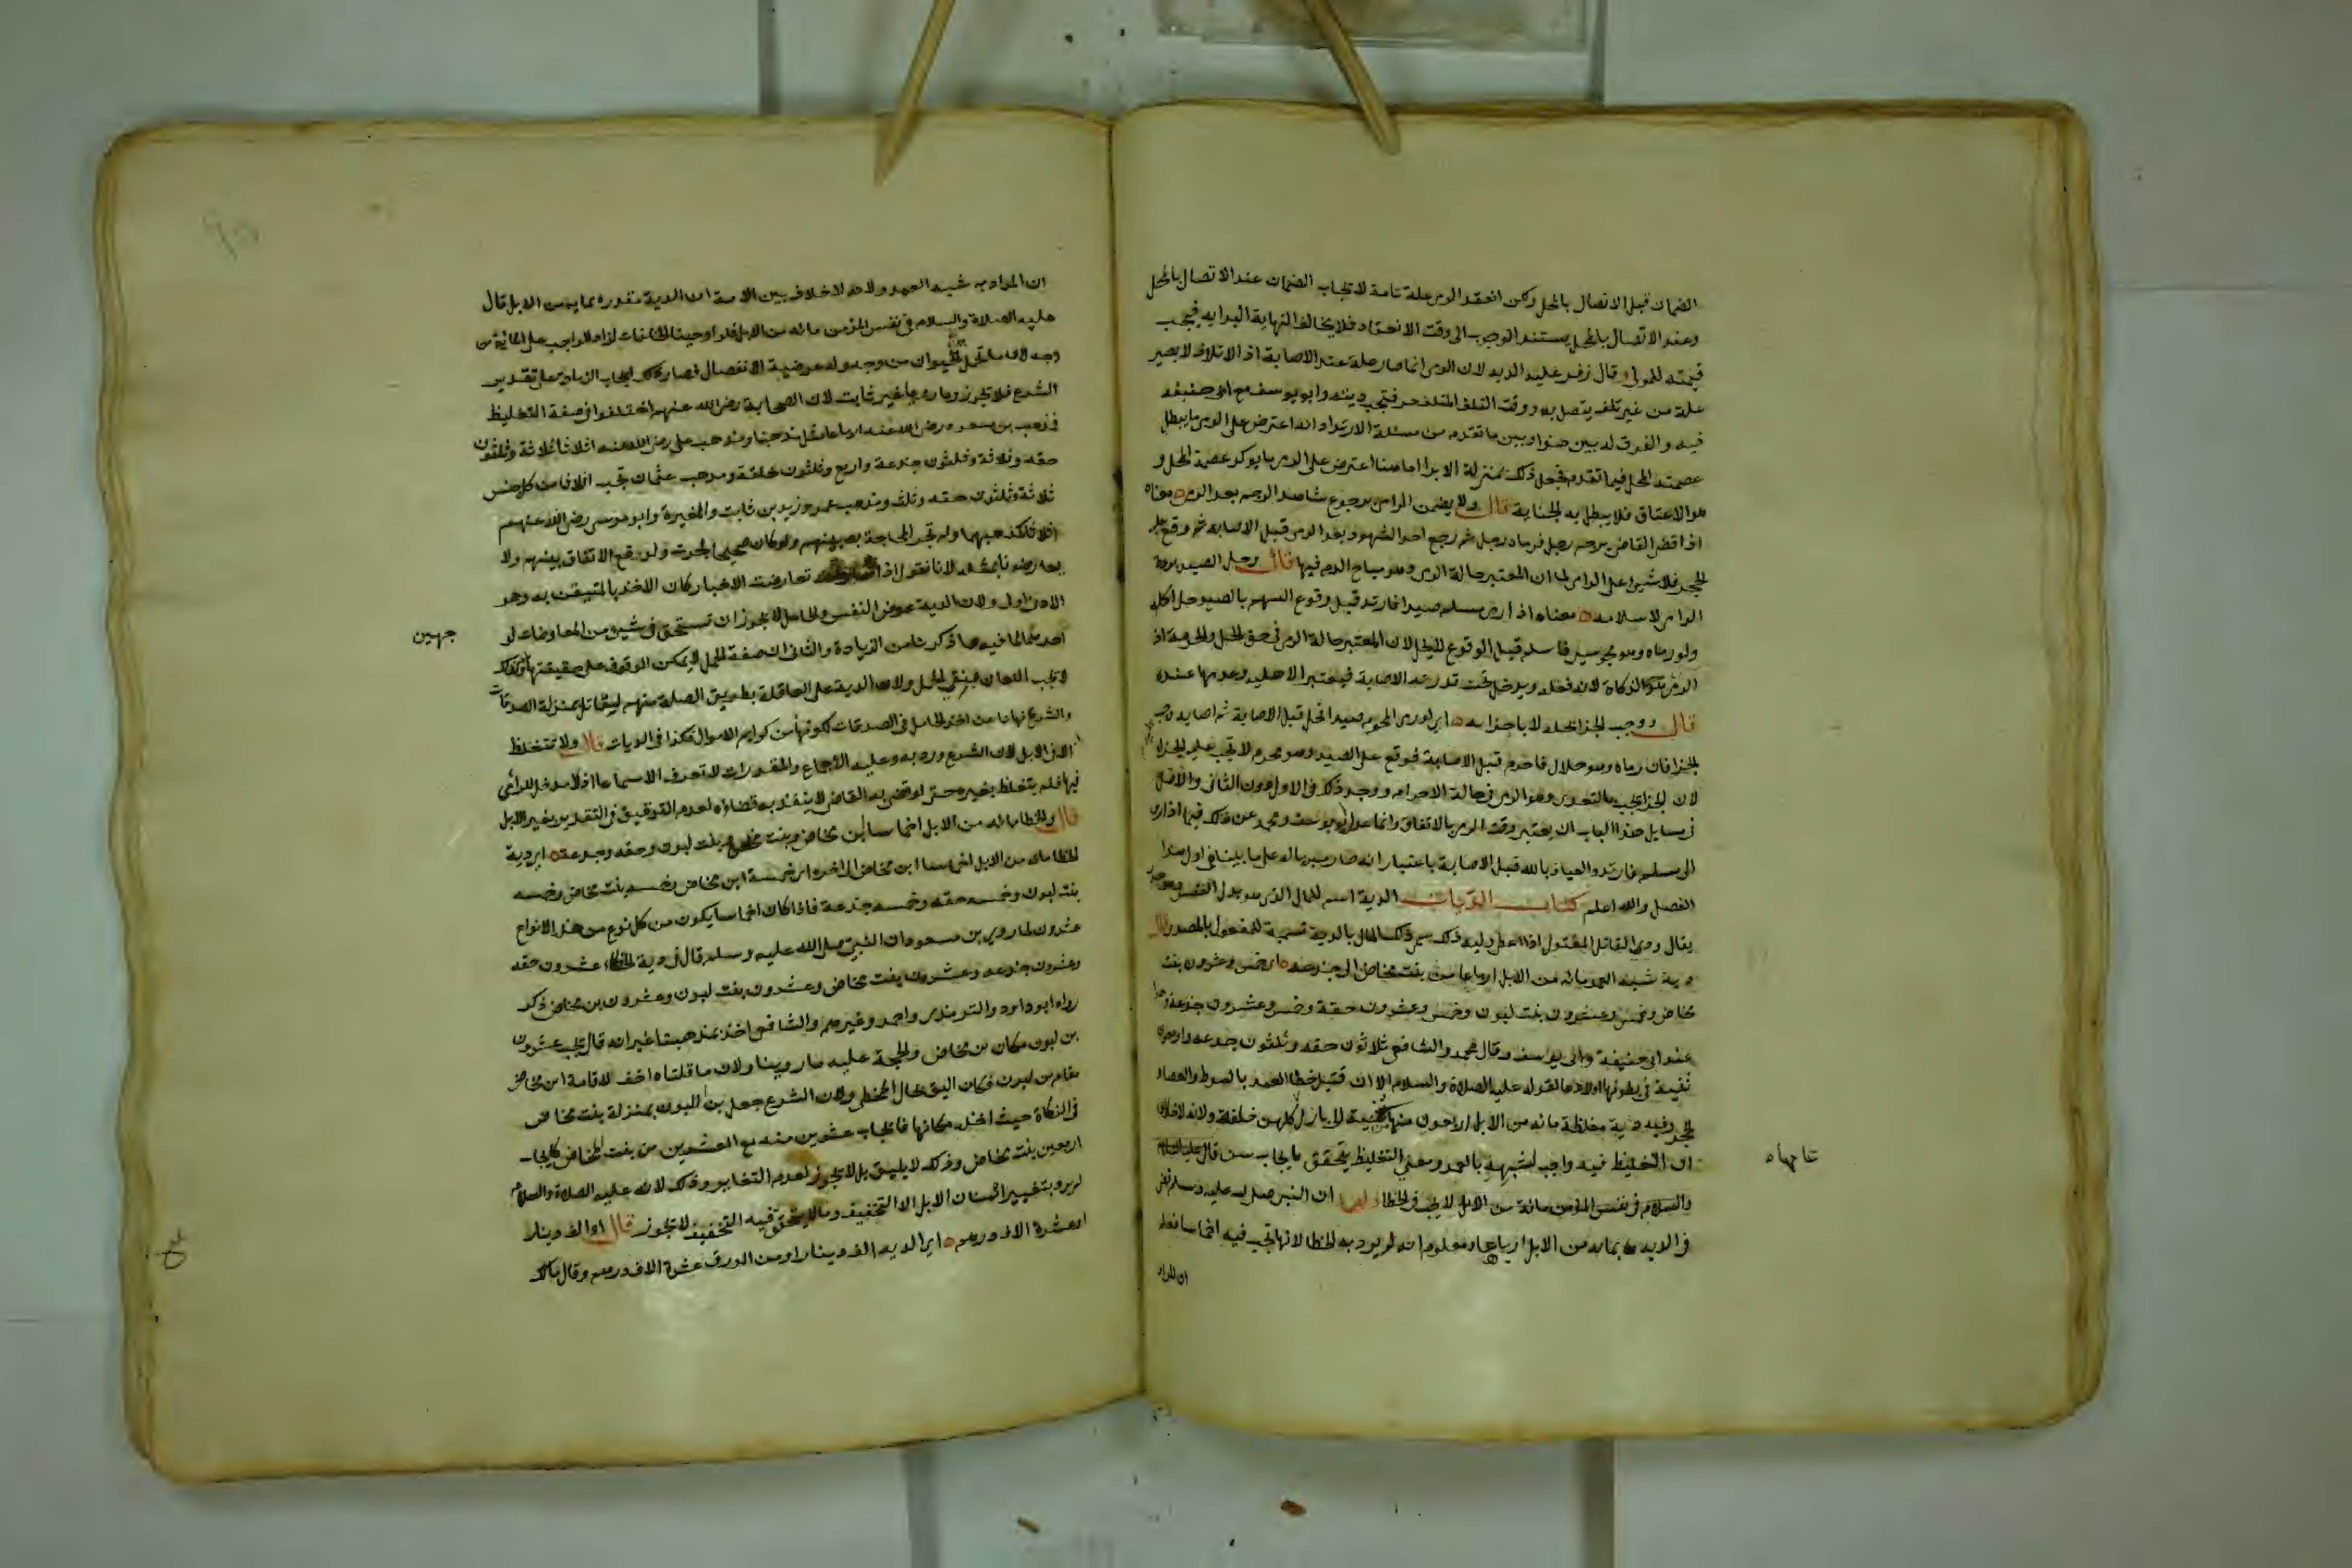 الضمان قبل الاتصال بالمحل ولكن انعقد الرمي علة تامة لايجاب الضمان عند الاتصال بالمحل
وعند الاتصال بالمحل يستند الوجوب الى وقت الانعقاد فلا يخالف النهاية البداية فيجب
قيمته للمولى وقال زفر عليه الدية لان الرمي انما صار علة عند الاصابة اذ الاتلاف لا يصير
علة من غير تلف يتصل به ووقت التلف المتلف حر فتجب ديته وابو يوسف مع ابى حنيفة
فيه والفرق له بين هذا وبين ما تقدم من مسئلة الارتداد انه اعترض على الرمي ما يبطل
عصمته المحل فيما تقدم فجعل ذلك بمنزلة الابرا اما هنا اعترض على الرمي ما يوكد عصمة المحل و
هو الاعتاق فلا يبطل به الجناية قال ولا يضمن الرامي برجوع شاهد الرجم بعد الرمي معناه
اذا قضى القاضى برجم رجل فرماه رجل ثم رجع احد الشهود بعد الرمي قبل الاصابة ثم وقع عليه
الحجر فلا شيئ على الرامي لما ان المعتبر حالة الرمي وهو مباح الدم فيها قال وحل الصيد بردة
الرامي لا اسلامه معناه اذا رمى مسلم صيدا فارتد قبل وقوع السهم بالصيد حل اكله
ولو رماه وهو مجوسي فاسلم قبل الوقوع لا يحل لان المعتبر حالة الرمي في حق الحل والحرمة اذ
الرمي هو الذكاة لانه فعله ويدخل تحت قدرته الاصابة فيعتبر الاهلية وعدمها عنده
قال ووجب الجزا بحله لا باحرامه اى لو رمى المحرم صيدا فحل قبل الاصابة ثم اصابه وجب
الجزا فان رماه وهو حلال فاحرم قبل الاصابة فوقع على الصيد وهو محرم لا تجب عليه الجزا
لان الجزا يجب بالتعدي وهو الرمي في حالة الاحرام ووجد ذلك في الاول دون الثانى والاصل
في مسايل هذا الباب ان يعتبر وقت الرمي بالاتفاق وانما عدل ابو يوسف ومحمد عن ذلك فيما اذا رمى
الى مسلم فارتد والعياذ بالله قبل الاصابة باعتبار انه صار مبريا له على ما بينا في اول هذا
الفصل والله اعلم كتاب الديات الدية اسم للمال الذى هو بدل النفس
يقال ودى القاتل المقتول اذا اعطى وليه ذلك سمى ذلك المال بالدية تسمية للمفعول بالمصدر قال
دية شبه العمد مائة من الابل ارباعا من بنت مخاض الى جذعة اى خمس وعشرون بنت
مخاض وخمس وعشرون بنت لبون وخمس وعشرون حقة وخمس وعشرون جذعة وهذا
عند ابى حنيفة وابى يوسف وقال محمد والشافعى ثلاثون حقه وثلثون جذعه واربعون
ثنية في بطونها اولادها لقوله عليه الصلاة والسلام الا ان قتيل خطا العمد بالسوط والعصا
الحجر وفيه دية مغلظة مائه من الابل اربعون منها ثنية الى بازل كلهن خلفة ولانه لا خلاف
ان التغليظ فيه واجب لشبهه بالعمد ومعنى التغليظ يتحقق بايجاب سن قال عليه السلام
والسلام في نفس المؤمن مائة من الابل لا يجب في الخطا ان النبى صلى الله عليه وسلم قضى
في الدية بمائة من الابل ارباعا ومعلوم انه لم يرد به الخطا لانها تجب فيه اخماسا فعلم
ان المراد
عامهاه
ان المراد به شبه العمد ولانه لا خلاف بين الامة ان الدية مقدرة بماية من الابل قال
عليه الصلاة والسلام في نفس المؤمن مائة من الابل فلو اوجبنا الخلفات لزاد الواجب على المائة من
وجه لان ما في الحيوان من وجه وله عرضية الانفصال فصار ذلك ايجاب الزيادة على تقدير
الشرع فلا تجوز وما رويا غير ثابت لان الصحابة رضى الله عنهم اختلفوا في صفة التغليظ
فذهب بن مسعود رضى الله عنه ارباعا مثل مذهبنا ومذهب على رضى الله عنه اثلاثا ثلاثة وثلثون
حقه وثلاثة وثلثون جذعة واربع وثلثون خلفة ومذهب عثمان تجب اثلاثا من كل جنس
ثلاثة وثلثون حقه وثلث ومذهب عمر وزيد بن ثابت والمغيرة وابو موسى رضى الله عنهم
اثلاثا كمذهبهما ولم تجر المحاجة بينهم ولو كان صحيحا لجرت ولوقع الاتفاق بينهم ولا
يعارضه بمثله لانا نقول اذا تعارضت الاخبار كان الاخذ بالمتيقن به وهو
الادنى اولى ولان الدية عوض النفس والحامل لا يجوز ان تستحق في شيئ من المعاوضات لو
جهين
احدهما لما فيه ما ذكرنا من الزيادة والثانى ان صفة الحمل لا يمكن الوقوف على حقيقتها وكذلك
لا تجب اللعان بنفى الحمل ولان الدية على العاقلة بطريق الصلة منهم للقاتل بمنزلة الصدقات
والشرع نهانا من اخذ الحامل في الصدقات لكونها من كرايم الاموال فكذا في الديات قال ولا تتغلظ
الا في الابل لان الشرع ورد به وعليه الاجماع والمقدرات لا تعرف الا سماعا اذ لا مدخل للراى
فيها فلم يتغلظ بغيره حتى لو قضى به القاضى لا ينفذ به قضاؤه لعدم التوقيف في التقدير بغير الابل
قال والخطا مائه من الابل اخماسا ابن مخاض وبنت مخاض وبنت لبون وحقه وجذعة اى دية
الخطا مائة من الابل اخماسا ابن مخاض الى اخره اى خمسة ابن مخاض وخمسه بنت مخاض وخمسه
بنت لبون وخمسه حقه وخمسه جذعة فاذا كان اخماسا يكون من كل نوع من هذه الانواع
عشرون لما روى بن مسعود ان النبي صلى الله عليه وسلم قال في دية الخطا عشرون حقه
وعشرون جذعه وعشرون بنت مخاض وعشرون بنت لبون وعشرون بن مخاض ذكر
رواه ابو داود والترمذى واحمد وغيرهم والشافعى اخذ بمذهبنا غير انه قال تجب عشرون
بن لبون مكان بن مخاض والحجة عليه ما روينا ولان ما قلناه اخف لاقامة ابن مخاض
مقام بن لبون فكان اليق بحال المخطى ولان الشرع جعل بن اللبون بمنزلة بنت مخاض
في الزكاة حيث اخذه مكانها فايجاب عشرين منه مع العشرين من بنت المخاض كايجاب
اربعين بنت مخاض وذلك لا يليق بل لا تجوز لعدم التغاير وذلك لانه عليه الصلاة والسلام
لم يرد بتغيير اسنان الابل الا التخفيف وما لا يتحقق فيه التخفيف لا تجوز قال او الف دينار
او عشرة الاف درهم اى الدية الف دينار او من الورق عشرة الاف درهم وقال مالك